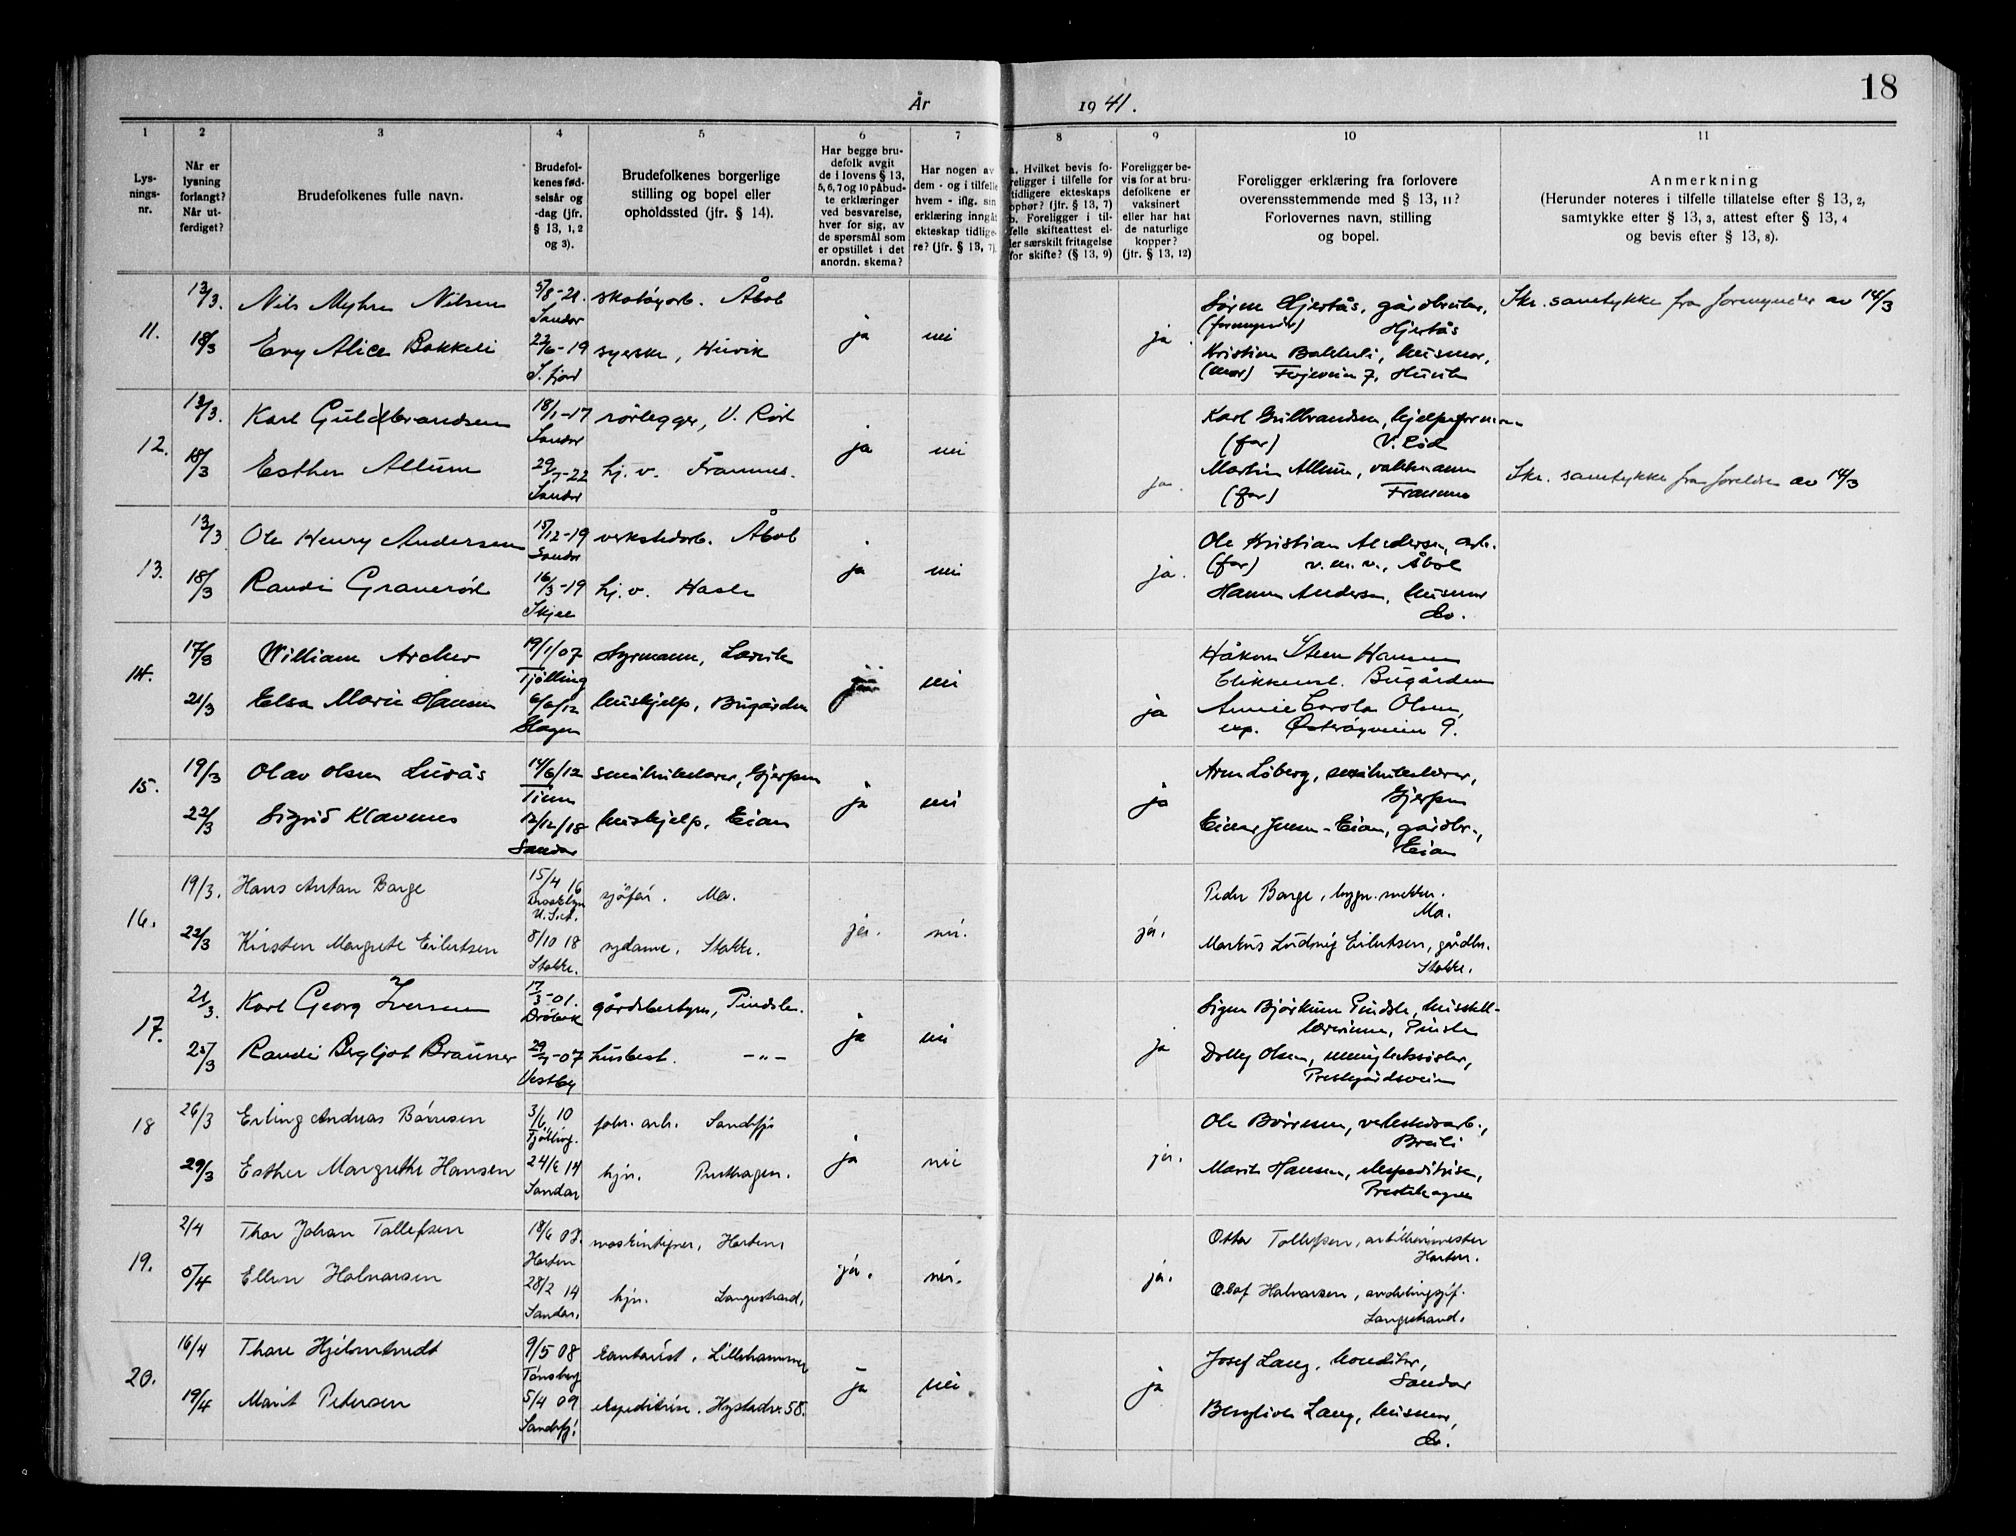 18
År 1941.
1 2 3 4 5 6 7 8 9 10 11
Lys-
nings-
nr.
Når er
lysning
forlangt?
Når ut-
ferdiget?
Brudefolkenes fulle navn.
Brudefol-
kenes fød-
selsår og
-dag (jfr.
§ 13, 1, 2
og 3).
Brudefolkenes borgerlige
stilling og bopel eller
opholdssted (jfr. § 14).
Har begge bru-
defolk avgit
de i lovens § 13,
5, 6, 7 og 10 påbud-
te erklæringer
ved besvarelse,
hver for sig, av
de spørsmål som
er opstillet i det
anordn. skema?
Har nogen av
dem - og i tilfelle
hvem - iflg. sin
erklæring inngått
ekteskap tidlige-
re? (jfr. § 13, 7).
a. Hvilket bevis fo-
religger i tilfelle for
tidligere ekteskaps
ophør? (jfr. § 13, 7)
b. Foreligger i til-
felle skifteattest el-
ler særskilt fritagelse
for skifte? (§ 13, 9)
Foreligger be-
vis for at bru-
defolkene er
vaksinert
eller har hat
de naturlige
kopper?
(jfr. § 13, 12)
Foreligger erklæring fra forlovere
overensstemmende med § 13, 11?
Forlovernes navn, stilling
og bopel.
Anmerkning
(Herunder noteres i tilfelle tillatelse efter § 13, 2,
samtykke efter § 13, 3, attest efter § 13, 4
og bevis efter § 13, 8).
11. 13/3. Nils Myhre Nilsen 5/8-21. Sandar skotøyarb. Åbol ja nei ja
18/3 Evy Alice Bakkeli 22/6-19 S.fjord syerske, Huvik
Hjertås, gårdbruker,
(formynder) Hjertås
Kristine Bakkeli, husmor,
(mor) 7, Huvik
Skr. samtykke fra formynder av 14/3
12. 13/3. Karl Guldbrandsen 18/1-17 Sandar rørlegger, V. Rød ja nei ja.
18/3 Esther Allum 29/7-22 Sandar hj. v. Framnes.
Karl Gulbrandsen, hjelpeformann
(far) V. Rød
Martin Allum, vaktmann
(far) Framnes
Skr. samtykke fra foreldre av 14/3
13. 13/3 Ole Henry Andersen 15/12-19 Sandar verkstedarb. Åbol ja nei ja.
18/3 Randi Granerød 16/3-19 Skjee hj. v. Hasle
Ole Kristian Andersen, arb.
(far) v. m. v., Åbol
Hanna Andersen, husmor
do.
14. 17/3 William Archer 19/1/07 Tjølling styrmann, Larvik nei ja
21/3 Elsa Marie Hansen 6/6/12 Slagen huskjelp, Bugården
Håkon Steen Hansen
blikkensl. Bugården
Annie Carola Olsen,
exp. Østerøyveien 9.
15. 19/3 Olav Olsen Lurås 14/6/12 Tinn småbrukslærer, Gjerpen ja nei ja
22/3 Sigrid Klavenes 12/12/18 Sandar huskjelp, Eian
Arne Løberg, småbrukslærer,
Gjerpen
Einar Jensen-Eian, gårdbr.,
Eian
16. 19/3. Hans Anton Barge 15/4 16 Brooklyn U.S.A. sjøfar. Mo. ja. nei. ja.
22/3 Kirsten Margrete Eilertsen 8/10 18 Stokke. sydame. Stokke.
Peder Barge, bygn. snekker.
Mo.
Markus Ludvig Eilertsen, gårdbr.
Stokke.
17. 21/3. Karl Georg Iversen 17/3-01. Drøbak gårdsbestyrer, Pindsle. ja nei ja
25/3 Randi Bergljot Brauner 29/7-07 Vestby husbest. -"-
Signe Bjørkum Pindsle, husstell-
lærerinne, Pindsle
Dolly Olsen, menighetssøster,
Prestegårdsveien
18 26/3 Erling Andreas Børresen 3/6 10 Tjølling. fabr. arb. Sandefj. ja nei ja.
29/3 Esther Margrethe Hansen 24/6 14 Sandar hjv. Presthagen.
Ole Børresen, verkstedarb.,
Breili
Marit Hansen, ekspeditrise,
Prestehagen
19. 2/4 Thor Johan Tollefsen 18/6 07. Horten maskintegner, Horten, ja. nei. ja.
5/4 Ellen Halvorsen 28/2 14 Sandar. hjv. Langestrand,
Otto Tollefsen, artillerimester
Horten.
Olaf Halvorsen, avdelingssjef.
Langestrand.
20. 16/4 Thore Hjelmtvedt 9/5 08 Tønsberg kontorist. Lillehammer ja nei ja
19/4 Marit Petersen 5/4 09 Sandefj. ekspeditrise. Hystadv. 58.
Josef Lang, konditor,
Sandar
Bergliot Lang, husmor,
do.